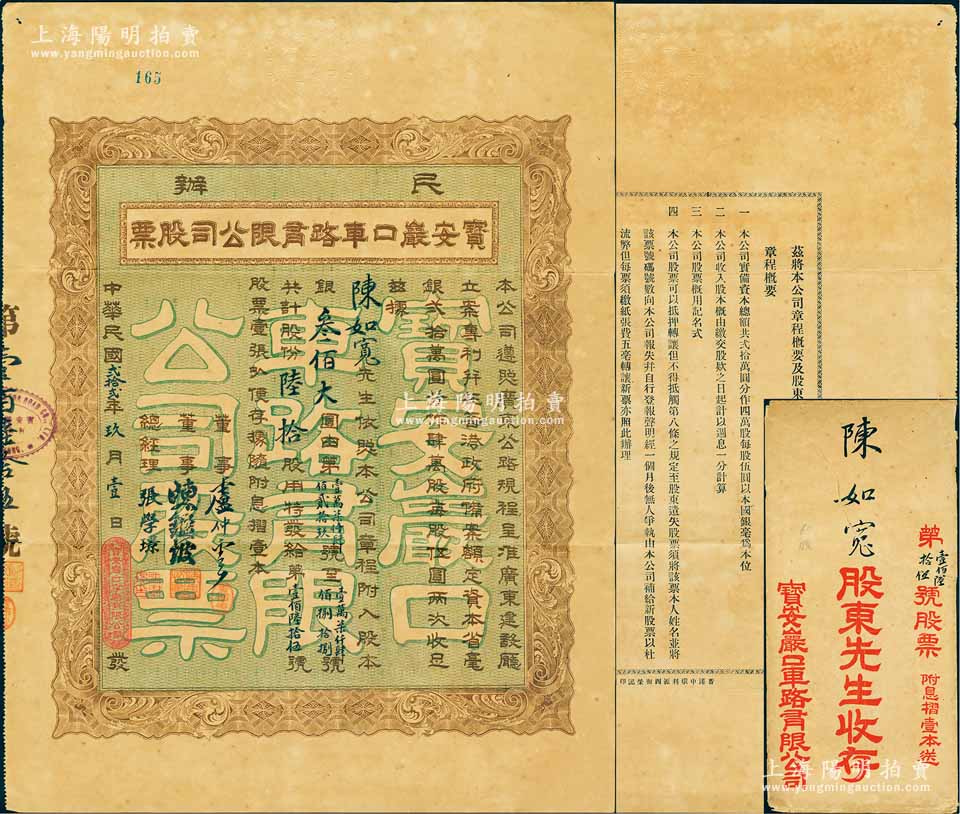 上海陽明拍賣
www.yangmingauction.com
165
民辦
寶安巖口車路有限公司股票
本公司遵照廣東公路規程呈准廣東建設廳
立案專利幷呈港政府備案額定資本省毫
銀弍拾萬圓並肆萬股每股伍圓兩次收足
茲據
陳如寬先生依照本公司章程附入股本
銀叁佰大圓由第壹萬柒仟
佰貳拾玖號至壹萬柒仟
佰捌拾捌號
共計股份陸拾股用特發給第壹佰陸拾伍號
股票壹張以便存據隨附息摺壹本
董事盧仲雲
董事陳
總經理張學璟
中華民國弍拾弍年玖月壹日發
寶安巖口車路有限公司股票
茲將本公司章程概要及股東
章程概要
一 本公司實備資本總額共弍拾萬圓分作四萬股每股伍圓以本國銀毫爲本位
二 本公司收入股本概由繳交股欵之日起計以週息一分計算
三 本公司股票概用記名式
四 本公司股票可以抵押轉讓但不得抵觸第八條之規定至股東遺失股票須將該票本人姓名並將
該票號碼號數向本公司報失幷自行登報聲明經一個月後無人爭執由本公司補給新股票以杜
流弊但每票須繳紙張費五毫轉讓新票亦照此辦理
香港中環利源西街榮記印
第壹佰陸拾伍號股票 附息摺壹本送
陳如寬
股東先生收存
寶安巖口車路有限公司
上海陽明拍賣
www.yangmingauction.com
上海陽明拍賣
www.yangmingauction.com
上海陽明拍賣
www.yangmingauction.com